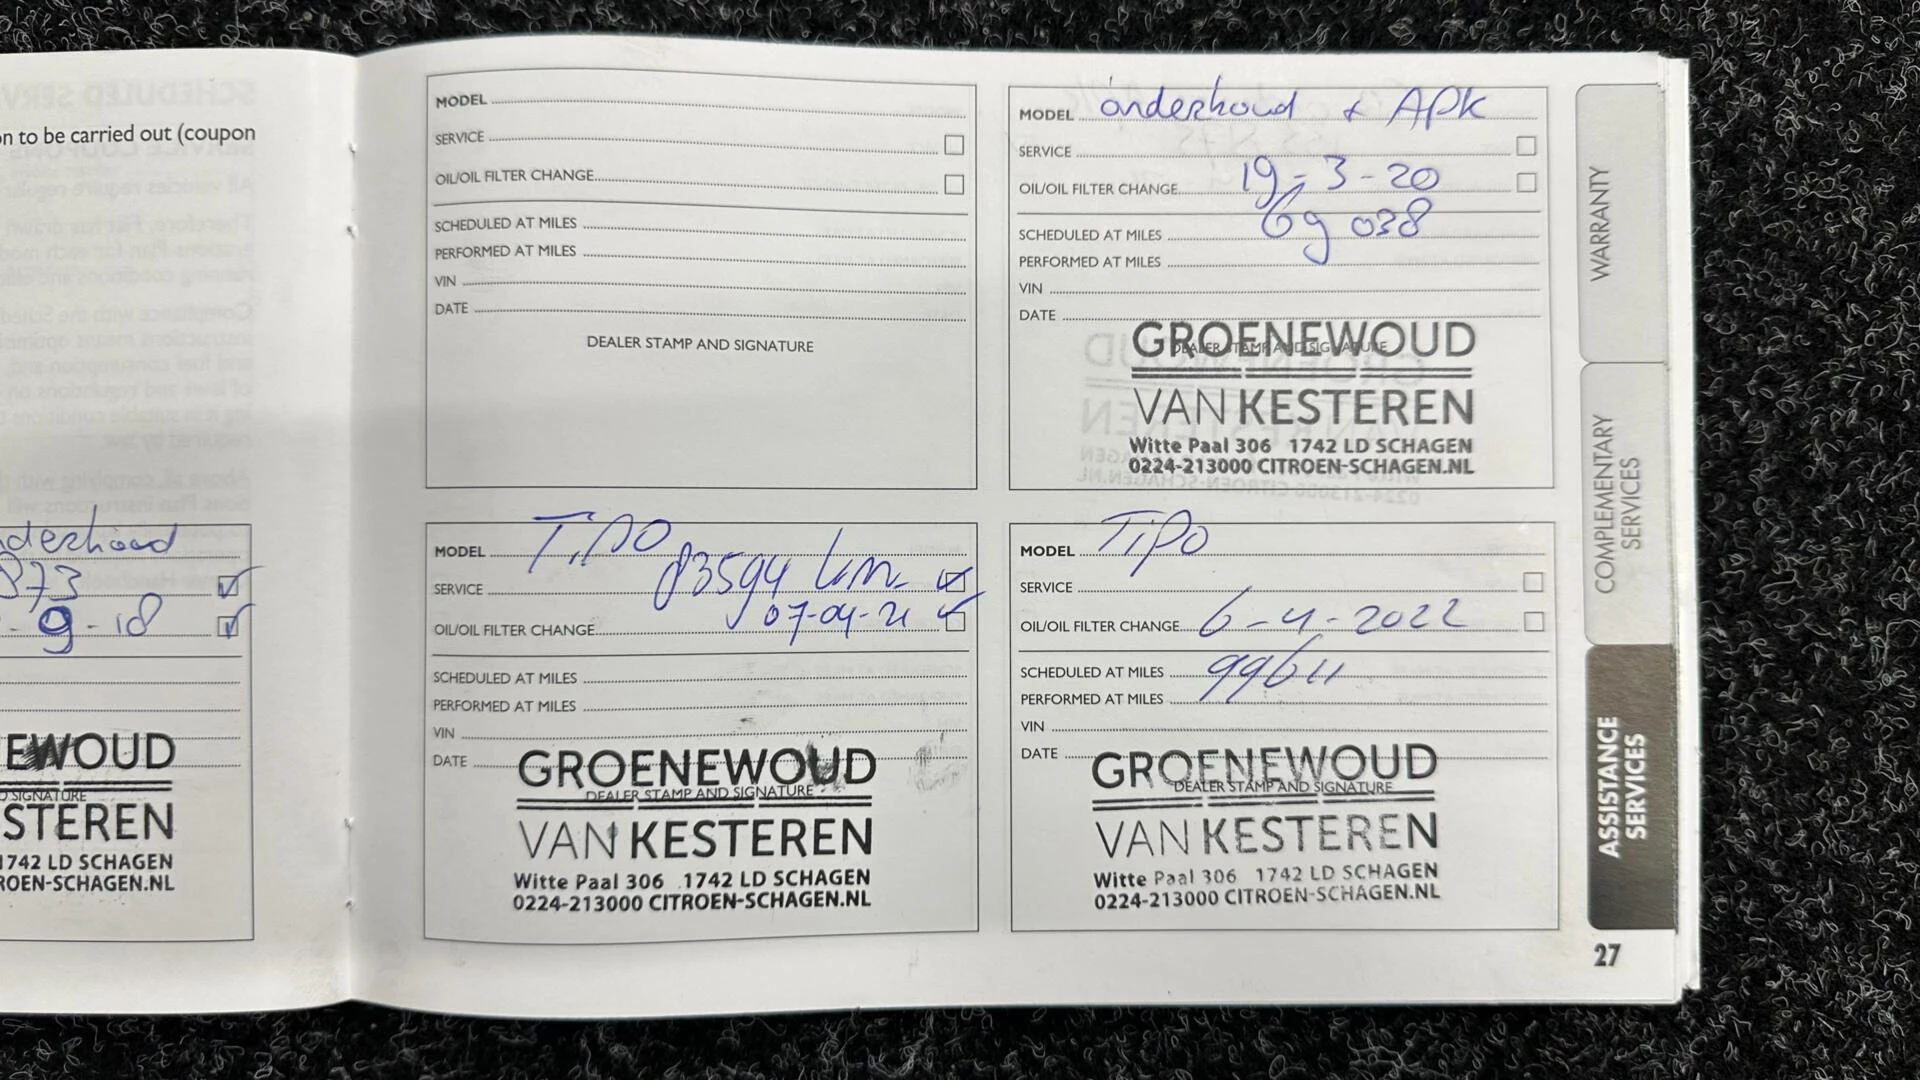 on to be carried out (coupon
nderhoud
873
- 9 - 18
EWOUD
D SIGNATURE
STEREN
1742 LD SCHAGEN
ROEN-SCHAGEN.NL
MODEL
SERVICE
OIL/OIL FILTER CHANGE
SCHEDULED AT MILES
PERFORMED AT MILES
VIN
DATE
DEALER STAMP AND SIGNATURE
MODEL onderhoud + APK
SERVICE
OIL/OIL FILTER CHANGE 19-3-20
SCHEDULED AT MILES 69 038
PERFORMED AT MILES
VIN
DATE
GROENEWOUD
DEALER STAMP AND SIGNATURE
VAN KESTEREN
Witte Paal 306 1742 LD SCHAGEN
0224-213000 CITROEN-SCHAGEN.NL
MODEL Tipo
SERVICE 83594 km
OIL/OIL FILTER CHANGE 07-04-21
SCHEDULED AT MILES
PERFORMED AT MILES
VIN
DATE
GROENEWOUD
DEALER STAMP AND SIGNATURE
VAN KESTEREN
Witte Paal 306 1742 LD SCHAGEN
0224-213000 CITROEN-SCHAGEN.NL
MODEL TiPo
SERVICE
OIL/OIL FILTER CHANGE 6-4-2022
SCHEDULED AT MILES 99611
PERFORMED AT MILES
VIN
DATE
GROENEWOUD
DEALER STAMP AND SIGNATURE
VAN KESTEREN
Witte Paal 306 1742 LD SCHAGEN
0224-213000 CITROEN-SCHAGEN.NL
WARRANTY
COMPLEMENTARY
SERVICES
ASSISTANCE
SERVICES
27